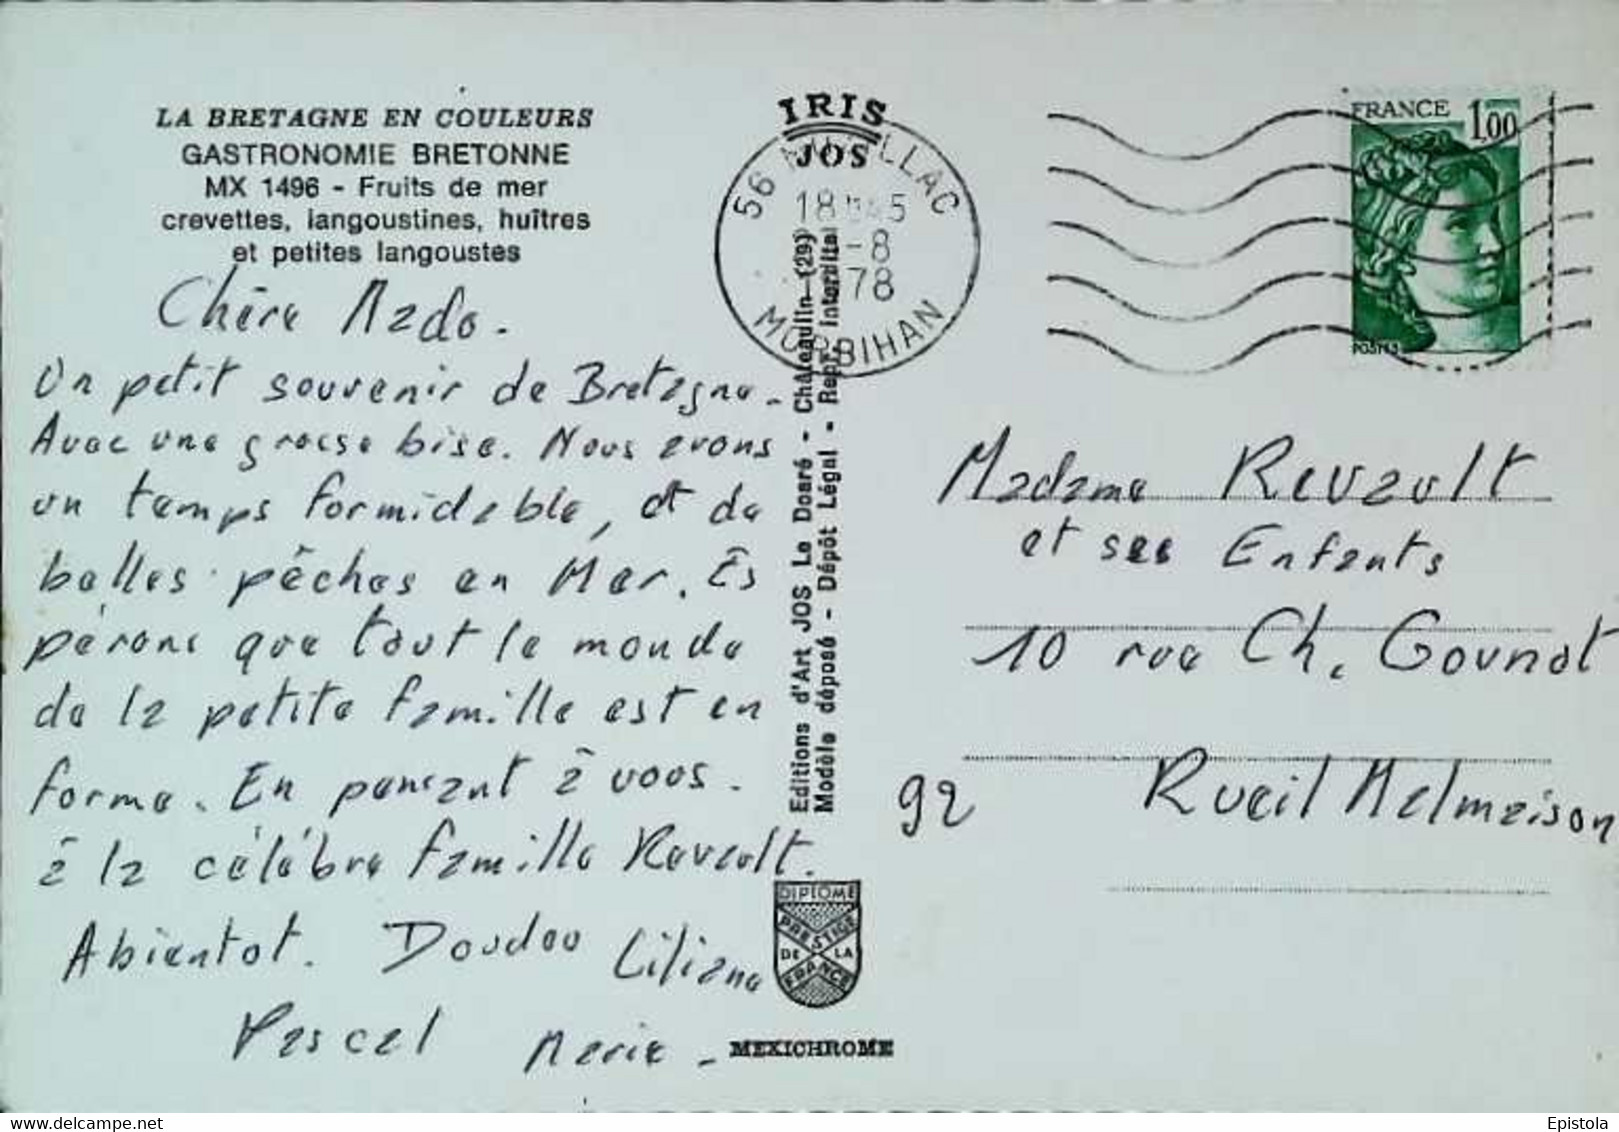 LA BRETAGNE EN COULEURS
GASTRONOMIE BRETONNE
MX 1496 - Fruits de mer
crevettes, langoustines, huîtres
et petites langoustes
Chère Mado.
Un petit souvenir de Bretagne.
Avec une grosse bise. Nous avons
un temps formidable, et de
belles pêches en Mer. Es
pérons que tout le monde
de la petite famille est en
forme. En pensant à vous.
à la célébre famille Revault.
Abientot. Doudou Liliane
Pascal Marie -
IRIS
JOS
56 LLAC
18 45
-8
78
MORBIHAN
Editions d'Art JOS Le Doaré - Châteaulin (29)
Modèle déposé - Dépôt Légal - Repr. interdite
DIPLOME
PRESTIGE
DE LA
FRANCE
MEXICHROME
FRANCE 1,00
POSTES
Madame Revault
et ses Enfants
10 rue Ch. Gounot
92 Rueil Malmaison
© delcampe.net
Epistola